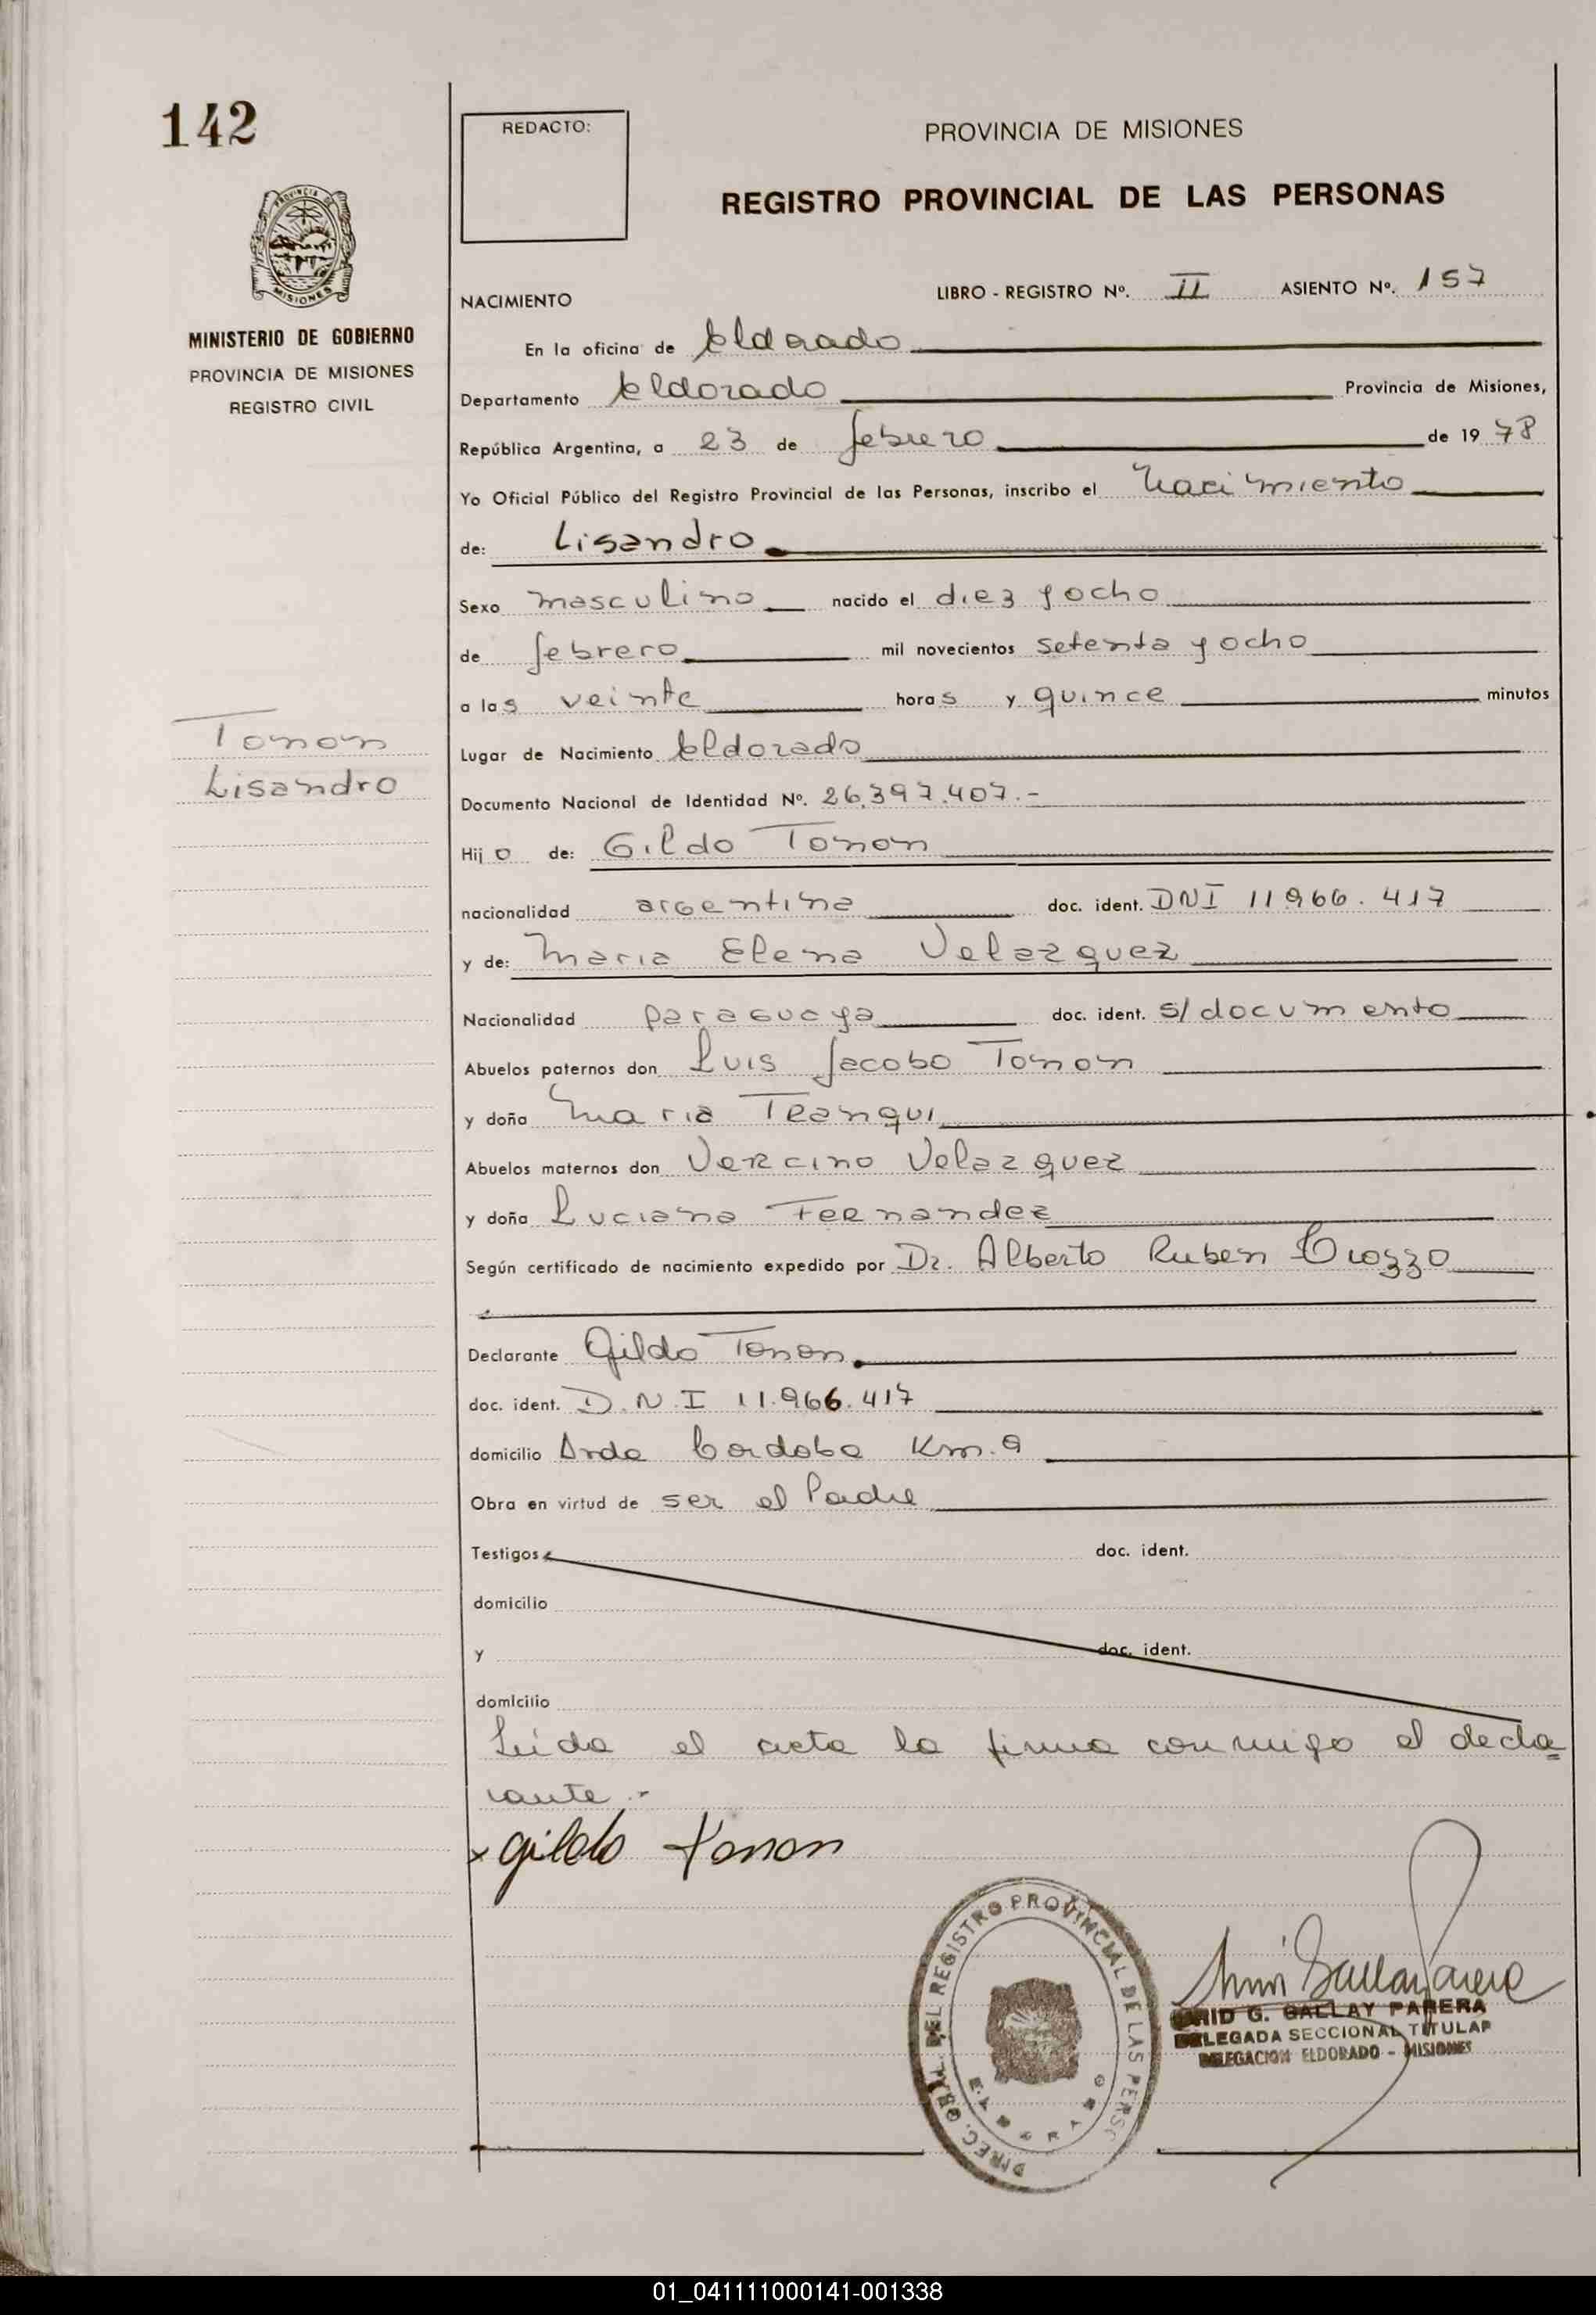 142
REDACTO:
PROVINCIA DE MISIONES
REGISTRO PROVINCIAL DE LAS PERSONAS
PROVINCIA DE
MISIONES
MINISTERIO DE GOBIERNO
PROVINCIA DE MISIONES
REGISTRO CIVIL
LIBRO - REGISTRO Nº. II ASIENTO Nº. 157
NACIMIENTO
En la oficina de Eldorado
Departamento Eldorado Provincia de Misiones,
República Argentina, a 23 de febrero de 1978
Yo Oficial Público del Registro Provincial de las Personas, inscribo el Nacimiento
de: Lisandro
Sexo masculino nacido el diez y ocho
de febrero mil novecientos setenta y ocho
a las veinte horas y quince minutos
Tonon
Lisandro
Lugar de Nacimiento Eldorado
Documento Nacional de Identidad Nº. 26.397.407.-
Hijo de: Gildo Tonon
nacionalidad argentina doc. ident. DNI 11966.417
y de: Maria Elena Velazquez
Nacionalidad paraguaya doc. ident. s/documento
Abuelos paternos don Luis Jacobo Tonon
y doña Maria Teanqui
Abuelos maternos don Vercino Velazquez
y doña Luciana Fernandez
Según certificado de nacimiento expedido por Dr. Alberto Ruben
Declarante Gildo Tonon
doc. ident. D.N.I 11.966.417
domicilio Avda Cordoba Km. 9
Obra en virtud de ser el Padre
Testigos doc. ident.
domicilio
y doc. ident.
domicilio
Leida el acta la firma conmigo el decla
rante.-
x Gildo Tonon
DIREC. GRAL. DEL REGISTRO PROVINCIAL DE LAS PERS
ELDORADO
G. GALLAY PARERA
DELEGADA SECCIONAL TITULAR
DELEGACION ELDORADO - MISIONES
01_041111000141-001338